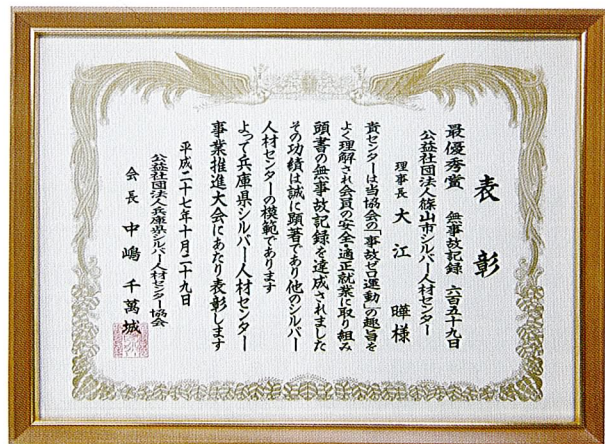 表彰
最優秀賞 無事故記録 六百五十九日
公益社団法人篠山市シルバー人材センター
理事長 大江 曄様
貴センターは当協会の「事故ゼロ運動」の趣旨を
よく理解され会員の安全適正就業に取り組み
頭書の無事故記録を達成されました
その功績は誠に顕著であり他のシルバー
人材センターの模範であります
よって兵庫県シルバー人材センター
事業推進大会にあたり表彰します
平成二十七年十月二十九日
公益社団法人兵庫県シルバー人材センター協会
会長 中嶋 千萬城